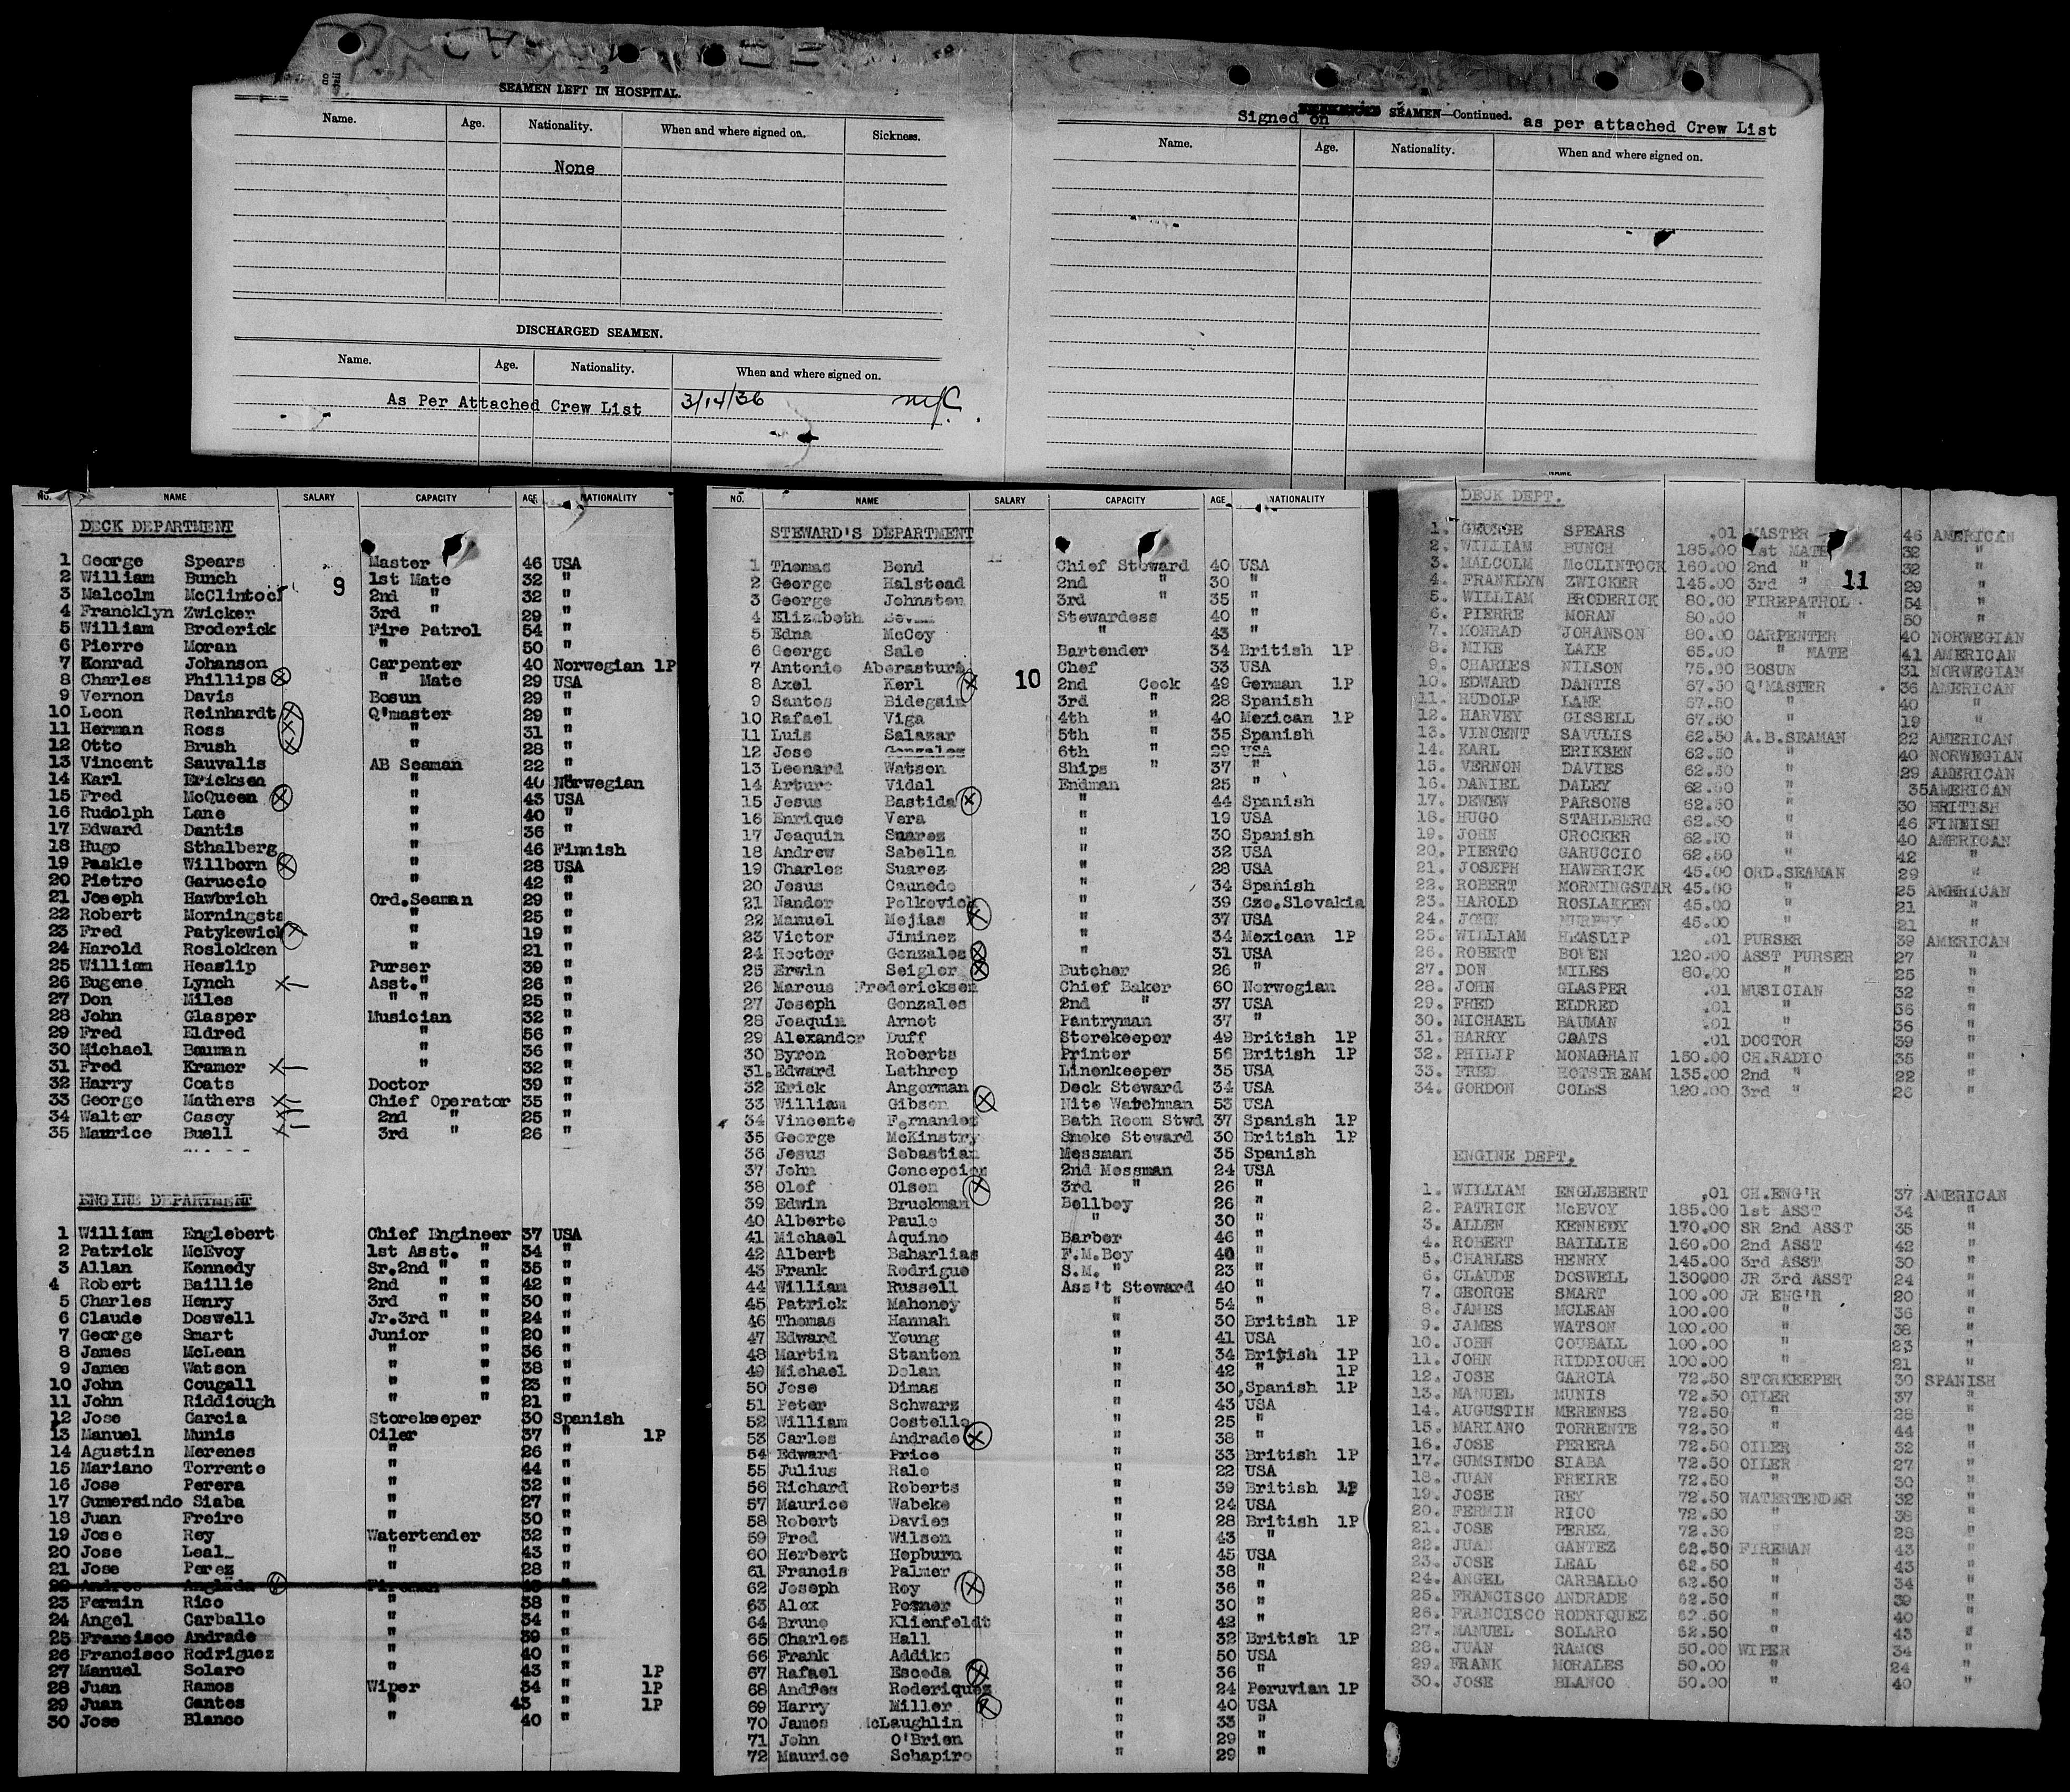 2
SEAMEN LEFT IN HOSPITAL.
Name. Age. Nationality. When and where signed on. Sickness.
None
DISCHARGED SEAMEN.
Name. Age. Nationality. When and where signed on.
As Per Attached Crew List 3/14/36
Signed on SEAMEN—Continued. as per attached Crew List
Name. Age. Nationality. When and where signed on.
NO. NAME SALARY CAPACITY AGE NATIONALITY
DECK DEPARTMENT
9
1 George Spears Master 46 USA
2 William Bunch 1st Mate 32 "
3 Malcolm McClintock 2nd " 32 "
4 Francklyn Zwicker 3rd " 29 "
5 William Broderick Fire Patrol 54 "
6 Pierre Moran " 50 "
7 Konrad Johanson Carpenter 40 Norwegian 1P
8 Charles Phillips " Mate 29 USA
9 Vernon Davis Bosun 29 "
10 Leon Reinhardt Q'master 29 "
11 Herman Ross " 31 "
12 Otto Brush " 28 "
13 Vincent Sauvalis AB Seaman 22 "
14 Karl Ericksen " 40 Norwegian
15 Fred McQueen " 43 USA
16 Rudolph Lane " 40 "
17 Edward Dantis " 36 "
18 Hugo Sthalberg " 46 Finnish
19 Paskle Willborn " 28 USA
20 Pietro Garuccio " 42 "
21 Joseph Hawbrich Ord.Seaman 29 "
22 Robert Morningsta " 25 "
23 Fred Patykewich " 19 "
24 Harold Roslokken " 21 "
25 William Heaslip Purser 39 "
26 Eugene Lynch Asst." 26 "
27 Don Miles " " 25 "
28 John Glasper Musician 32 "
29 Fred Eldred " 56 "
30 Michael Bauman " 36 "
31 Fred Kramer " 32 "
32 Harry Coats Doctor 39 "
33 George Mathers Chief Operator 35 "
34 Walter Casey 2nd " 25 "
35 Maurice Buell 3rd " 26 "
ENGINE DEPARTMENT
1 William Englebert Chief Engineer 37 USA
2 Patrick McEvoy 1st Asst. " 34 "
3 Allan Kennedy Sr.2nd " " 35 "
4 Robert Baillie 2nd " " 42 "
5 Charles Henry 3rd " " 30 "
6 Claude Doswell Jr.3rd " " 24 "
7 George Smart Junior " 20 "
8 James McLean " " 36 "
9 James Watson " " 38 "
10 John Cougall " " 23 "
11 John Riddiough " " 21 "
12 Jose Garcia Storekeeper 30 Spanish
13 Manuel Munis Oiler 37 " 1P
14 Agustin Merenes " 26 "
15 Mariano Torrente " 44 "
16 Jose Perera " 32 "
17 Gumersindo Siaba " 27 "
18 Juan Freire " 30 "
19 Jose Rey Watertender 32 "
20 Jose Leal " 43 "
21 Jose Perez " 28 "
22 Andres Anglada Fireman "
23 Fermin Rico " 38 "
24 Angel Carballo " 34 "
25 Francisco Andrade " 39 "
26 Francisco Rodriguez " 40 "
27 Manuel Solaro " 43 " 1P
28 Juan Ramos Wiper 34 " 1P
29 Juan Gantes " 43 " 1P
30 Jose Blanco " 40 "
NO. NAME SALARY CAPACITY AGE NATIONALITY
STEWARD'S DEPARTMENT
10
1 Thomas Bond Chief Steward 40 USA
2 George Halstead 2nd " 30 "
3 George Johnston 3rd " 35 "
4 Elizabeth Stewardess 40 "
5 Edna McCoy " 43 "
6 George Sale Bartender 34 British 1P
7 Antonio Aberasturi Chef 33 USA
8 Axel Kerl 2nd Cook 49 German 1P
9 Santos Bidegain 3rd " 28 Spanish
10 Rafael Viga 4th " 40 Mexican 1P
11 Luis Salazar 5th " 35 Spanish
12 Jose Gonzales 6th " 29 USA
13 Leonard Watson Ships " 37 "
14 Arturo Vidal Endman 25 "
15 Jesus Bastida " 44 Spanish
16 Enrique Vera " 19 USA
17 Joaquin Suarez " 30 Spanish
18 Andrew Sabella " 32 USA
19 Charles Suarez " 28 USA
20 Jesus Caunedo " 34 Spanish
21 Nandor Polkovich " 39 Cze.Slovakia
22 Manuel Mejias " 37 USA
23 Victor Jiminez " 34 Mexican 1P
24 Hector Gonzales " 31 USA
25 Erwin Seigler Butcher 26 "
26 Marcus Fredericksen Chief Baker 60 Norwegian
27 Joseph Gonzales 2nd " 37 USA
28 Joaquin Arnot Pantryman 37 "
29 Alexander Duff Storekeeper 49 British 1P
30 Byron Roberts Printer 56 British 1P
31.Edward Lathrop Linenkeeper 35 USA
32 Erick Angerman Deck Steward 34 USA
33 William Gibson Nite Watchman 53 USA
34 Vincente Fernandez Bath Room Stwd 37 Spanish 1P
35 George McKinstry Smoke Steward 30 British 1P
36 Jesus Sebastian Messman 35 Spanish
37 John Concepcion 2nd Messman 24 USA
38 Olof Olsen 3rd " 26 "
39 Edwin Bruckman Bellboy 26 "
40 Alberto Paulo " 30 "
41 Michael Aquino Barber 46 "
42 Albert Baharlias F.M.Boy 40 "
43 Frank Rodrigue S.M. " 23 "
44 William Russell Ass't Steward 40 "
45 Patrick Mahoney " 54 "
46 Thomas Hannah " 30 British 1P
47 Edward Young " 41 USA
48 Martin Stanton " 34 British 1P
49 Michael Dolan " 42 " 1P
50 Jose Dimas " 30 Spanish 1P
51 Peter Schwarz " 43 USA
52 William Costello " 25 "
53 Carlos Andrade " 38 "
54 Edward Price " 33 British 1P
55 Julius Rale " 22 USA
56 Richard Roberts " 39 British 1P
57 Maurice Wabeke " 24 USA
58 Robert Davies " 28 British 1P
59 Fred Wilson " 43 "
60 Herbert Hepburn " 45 USA
61 Francis Palmer " 38 "
62 Joseph Roy " 36 "
63 Alex Posner " 30 "
64 Bruno Klienfeldt " 42 "
65 Charles Hall " 32 British 1P
66 Frank Addiks " 50 USA
67 Rafael Esceda " 36 "
68 Andres Roderiquez " 24 Peruvian 1P
69 Harry Miller " 40 USA
70 James McLaughlin " 33 "
71 John O'Brien " 29 "
72 Maurice Schapiro " 29 "
NAME
DECK DEPT.
11
1. GEORGE SPEARS .01 MASTER 46 AMERICAN
2. WILLIAM BUNCH 185.00 1st MATE 32 "
3. MALCOLM McCLINTOCK 160.00 2nd " 32 "
4. FRANKLYN ZWICKER 145.00 3rd " 29 "
5. WILLIAM BRODERICK 80.00 FIREPATROL 54 "
6. PIERRE MORAN 80.00 " 50 "
7. KONRAD JOHANSON 80.00 CARPENTER 40 NORWEGIAN
8. MIKE LAKE 65.00 " MATE 41 AMERICAN
9. CHARLES NILSON 75.00 BOSUN 31 NORWEGIAN
10. EDWARD DANTIS 67.50 Q'MASTER 36 AMERICAN
11. RUDOLF LANE 67.50 " 40 "
12. HARVEY GISSELL 67.50 " 19 "
13. VINCENT SAVULIS 62.50 A.B.SEAMAN 22 AMERICAN
14. KARL ERIKSEN 62.50 " 40 NORWEGIAN
15. VERNON DAVIES 62.50 " 29 AMERICAN
16. DANIEL DALEY 62.00 " 35AMERICAN
17. DEWEW PARSONS 62.50 " 30 BRITISH
18. HUGO STAHLBERG 62.50 " 46 FINNISH
19. JOHN CROCKER 62.50 " 40 AMERICAN
20. PIERTO GARUCCIO 62.50 " 42 "
21. JOSEPH HAWBRICK 45.00 ORD.SEAMAN 29 "
22. ROBERT MORNINGSTAR 45.00 " 25 AMERICAN
23. HAROLD ROSLAKKEN 45.00 " 21 "
24. JOHN MURPHY 45.00 " 21 "
25. WILLIAM HEASLIP .01 PURSER 39 AMERICAN
26. ROBERT BOWEN 120.00 ASST PURSER 27 "
27. DON MILES 80.00 " 25 "
28. JOHN GLASPER .01 MUSICIAN 32 "
29. FRED ELDRED .01 " 56 "
30. MICHAEL BAUMAN .01 " 36 "
31. HARRY COATS .01 DOCTOR 39 "
32. PHILIP MONAGHAN 150.00 CH.RADIO 35 "
33. FRED HOTSTREAM 135.00 2nd " 22 "
34. GORDON COLES 120.00 3rd " 26 "
ENGINE DEPT.
1. WILLIAM ENGLEBERT .01 CH.ENG'R 37 AMERICAN
2. PATRICK McEVOY 185.00 1st ASST 34 "
3. ALLEN KENNEDY 170.00 SR 2nd ASST 35 "
4. ROBERT BAILLIE 160.00 2nd ASST 42 "
5. CHARLES HENRY 145.00 3rd ASST 30 "
6. CLAUDE DOSWELL 130000 JR 3rd ASST 24 "
7. GEORGE SMART 100.00 JR ENG'R 20 "
8. JAMES MCLEAN 100.00 " 36 "
9. JAMES WATSON 100.00 " 38 "
10. JOHN COUBALL 100.00 " 23 "
11. JOHN RIDDIOUGH 100.00 " 21 "
12. JOSE GARCIA 72.50 STOREKEEPER 30 SPANISH
13. MANUEL MUNIS 72.50 OILER 37 "
14. AUGUSTIN MERENES 72.50 " 28 "
15. MARIANO TORRENTE 72.50 " 44 "
16. JOSE PERERA 72.50 OILER 32 "
17. GUMSINDO SIABA 72.50 OILER 27 "
18. JUAN FREIRE 72.50 " 30 "
19. JOSE REY 72.50 WATERTENDER 32 "
20. FERMIN RICO 72.50 " 38 "
21. JOSE PEREZ 72.50 " 28 "
22. JUAN GANTEZ 62.50 FIREMAN 43 "
23. JOSE LEAL 62.50 " 43 "
24. ANGEL CARBALLO 62.50 " 34 "
25. FRANCISCO ANDRADE 62.50 " 39 "
26. FRANCISCO RODRIQUEZ 62.50 " 40 "
27. MANUEL SOLARO 62.50 " 43 "
28. JUAN RAMOS 50.00 WIPER 34 "
29. FRANK MORALES 50.00 " 24 "
30. JOSE BLANCO 50.00 " 40 "